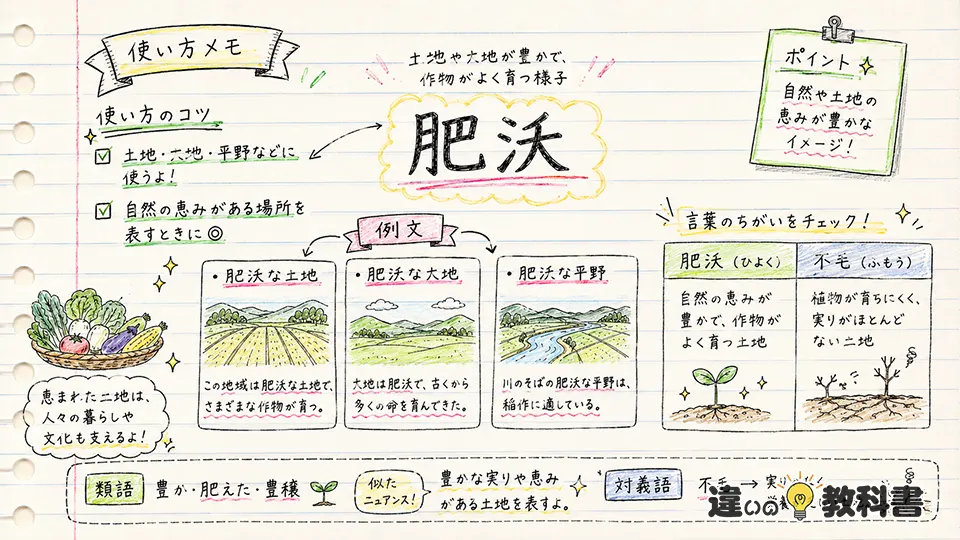 使い方メモ
土地や大地が豊かで、
作物がよく育つ様子
肥沃
ポイント
自然や土地の
恵みが豊かな
イメージ!
使い方のコツ
土地・大地・平野などに
使うよ!
自然の恵みがある場所を
表すときに◎
例文
・肥沃な土地
この地域は肥沃な土地で、
さまざまな作物が育つ。
・肥沃な大地
大地は肥沃で、古くから
多くの命を育んできた。
・肥沃な平野
川のそばの肥沃な平野は、
稲作に適している。
言葉のちがいをチェック!
肥沃(ひよく)
不毛(ふもう)
自然の恵みが
豊かで、作物が
よく育つ土地
植物が育ちにくく、
実りがほとんど
ない土地
恵まれた土地は、
人々の暮らしや
文化も支えるよ!
類語
豊か・肥えた・豊穣
似た
ニュアンス!
豊かな実りや恵み
がある土地を表すよ。
対義語
不毛 → 実り
違いの教科書